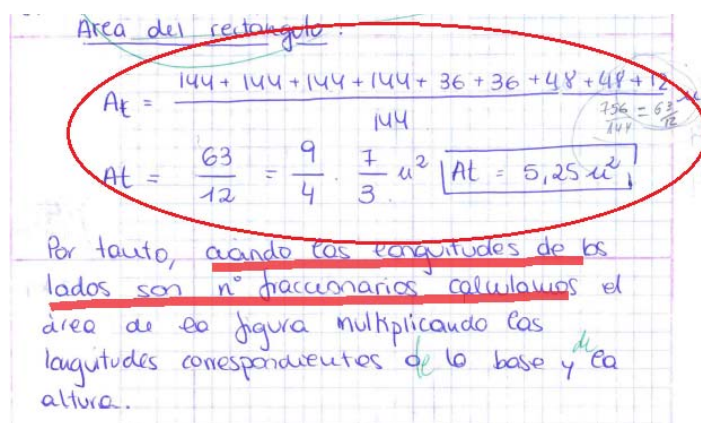 Area del rectangulo :
At = 144 + 144 + 144 + 144 + 36 + 36 + 48 + 48 + 12 / 144 u
756/144 = 63/12
At = 63/12 = 9/4 · 7/3 u² At = 5,25 u²
Por tanto, cuando las longitudes de los
lados son nº fraccionarios calculamos el
área de la figura multiplicando las
longitudes correspondientes de la base y de la
altura.